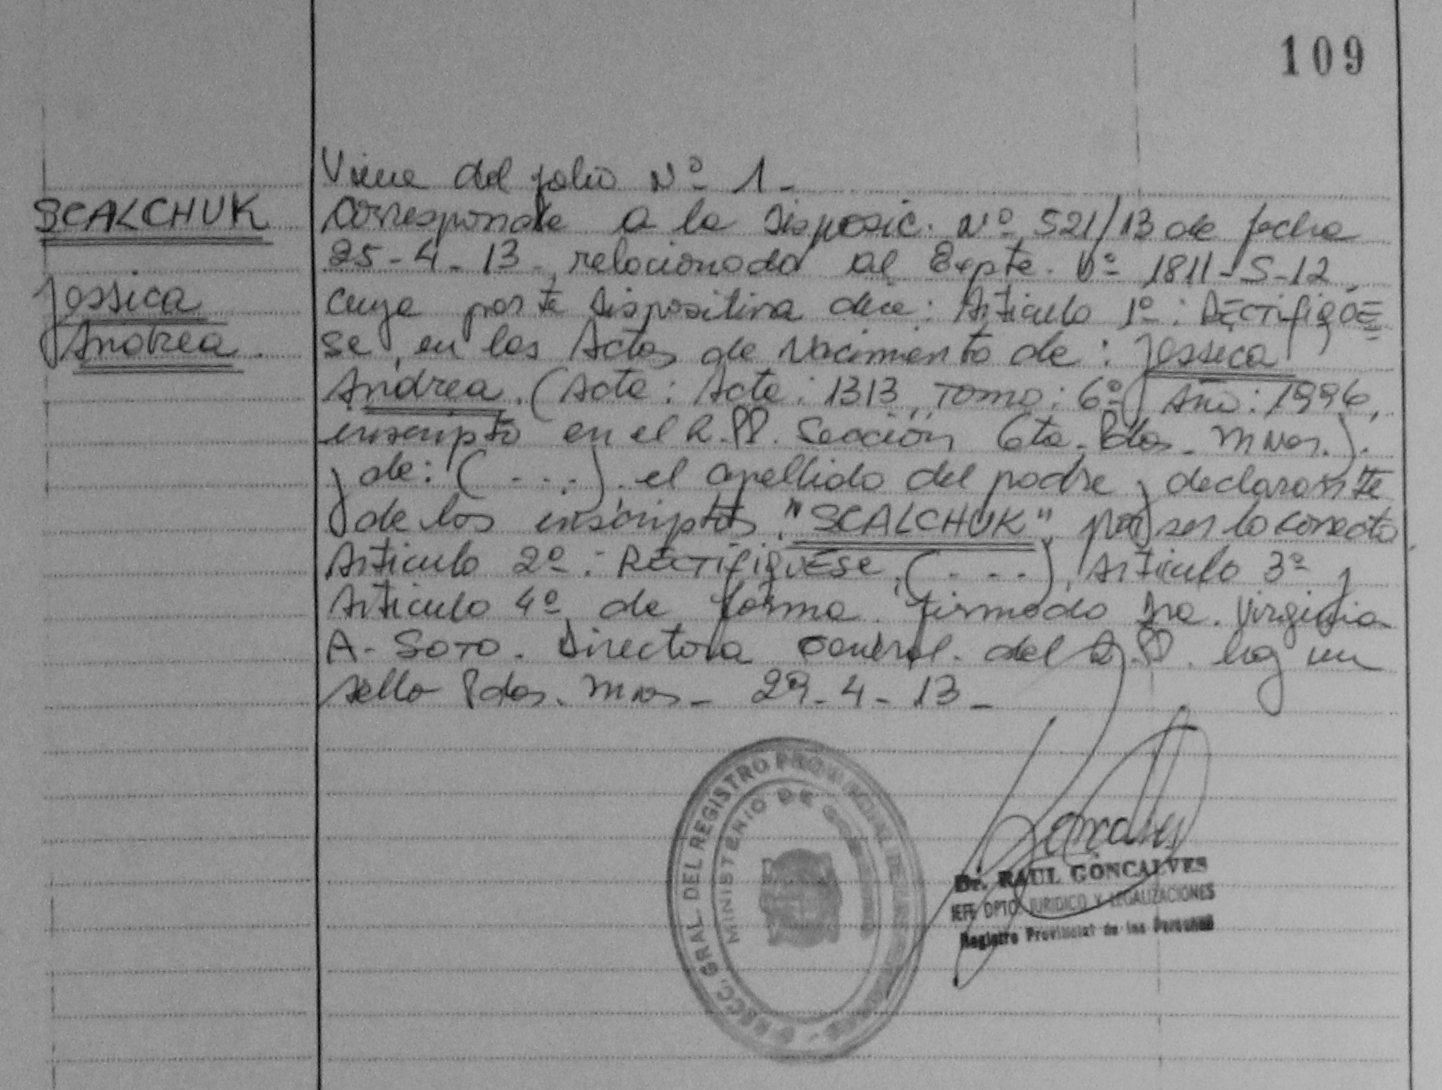 109
Viene del folio Nº 1-
SCALCHUK
Jessica
Andrea.
Corresponde a la Disposic. Nº 521/13 de fecha
25-4-13, relacionada al Expte. Nº 1811-S-12
cuya parte Dispositiva dice: Articulo 1º: RECTIFIQUE
se, en las Actas de Nacimiento de: Jessica
Andrea. (Acta: Acta: 1313, Tomo: 6º, Año: 1996,
inscripta en el R.PP. Sección 6ta. Pdas. Mnes.).
y de: (....). el apellido del padre y declarante
de los inscriptos "SCALCHUK", por ser lo correcto.
Articulo 2º: RECTIFIQUESE, (....), Articulo 3º y
Articulo 4º de forma. firmado Dra. Virginia
A. SOTO. Directora General. del R.P. hay un
sello Pdas. Mnes- 29-4-13-
DIRECC. GRAL. DEL REGISTRO PROVINCIAL DE LAS PERSONAS
MINISTERIO DE GOBIERNO
Dr. RAUL GONCALVES
JEFE DPTO. JURIDICO Y LEGALIZACIONES
Registro Provincial de las Personas